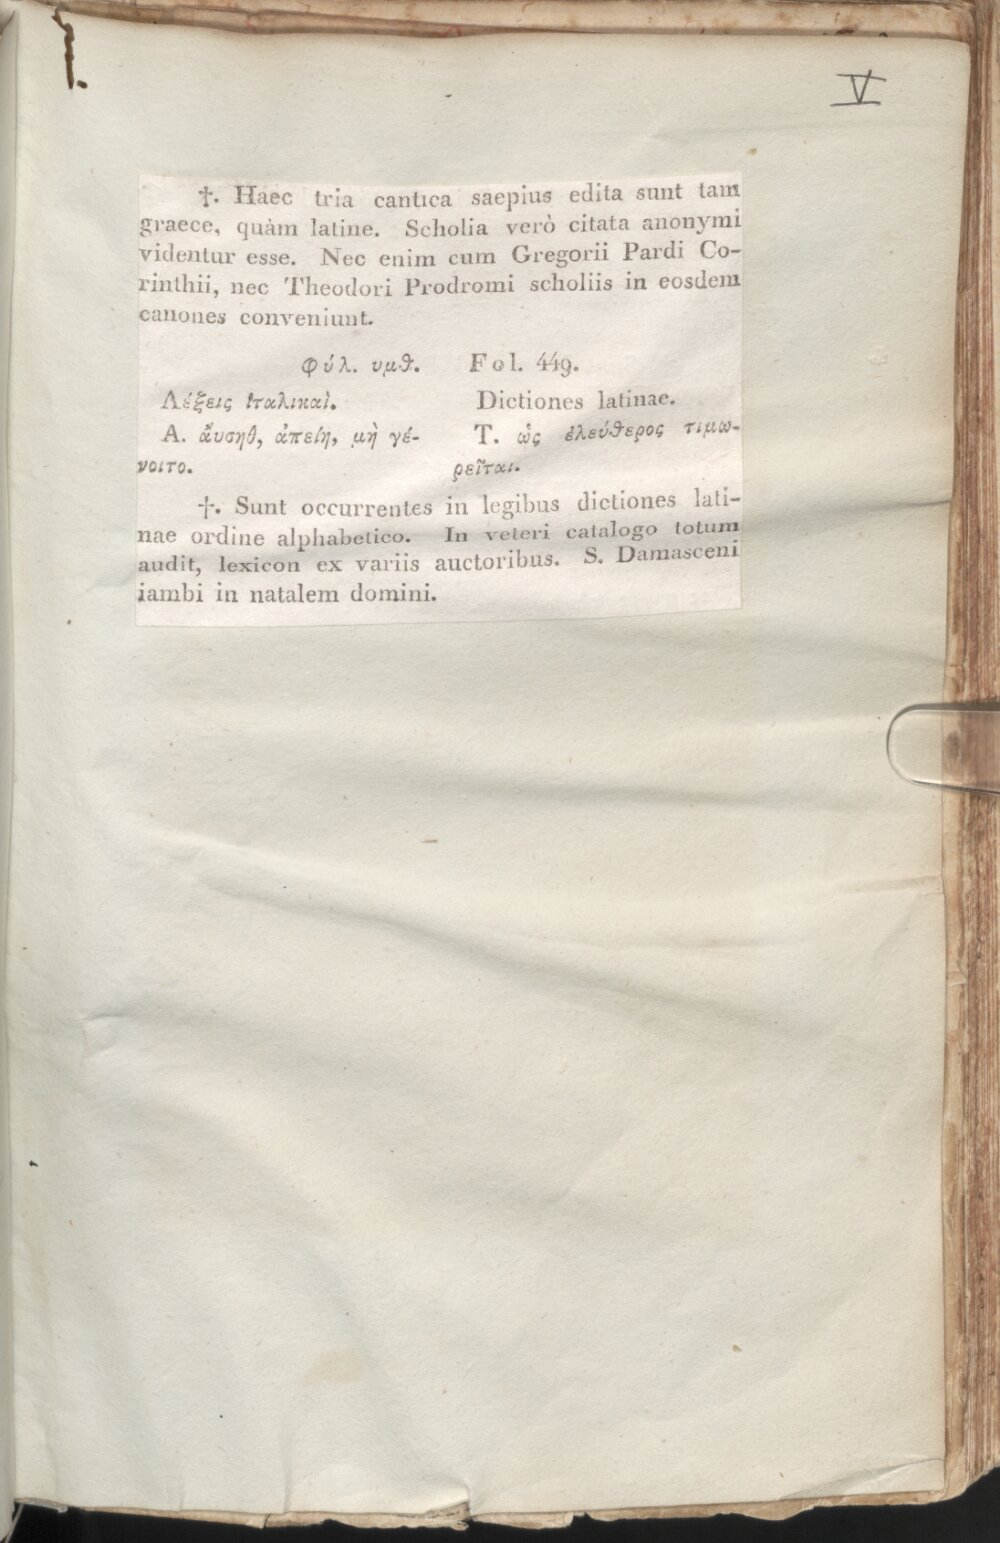 V
†. Haec tria cantica saepius edita sunt tam
graece, quàm latine. Scholia verò citata anonymi
videntur esse. Nec enim cum Gregorii Pardi Co-
rinthii, nec Theodori Prodromi scholiis in eosdem
canones conveniunt.
Φύλ. υμθ. Fol. 449.
Λέξεις ἰταλικαὶ. Dictiones latinae.
Α. ἄυσηθ, ἀπείη, μὴ γέ- Τ. ὡς ἐλεύθερος τιμω-
νοιτο. ρεῖται.
†. Sunt occurrentes in legibus dictiones lati-
nae ordine alphabetico. In veteri catalogo totum
audit, lexicon ex variis auctoribus. S. Damasceni
iambi in natalem domini.